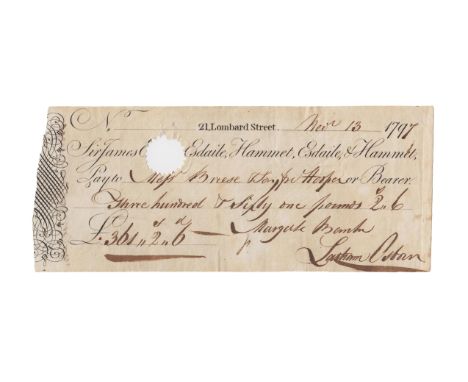 N.º 21, Lombard Street, Novr 13 1797
Sir James Esdaile, Hammet, Esdaile, & Hammet,
Pay to Messrs Breese or Bearer
Three hundred & Sixty one pounds 2s 6
£ 361 „ 2s „ 6d Margate Bank
Latham Osborn